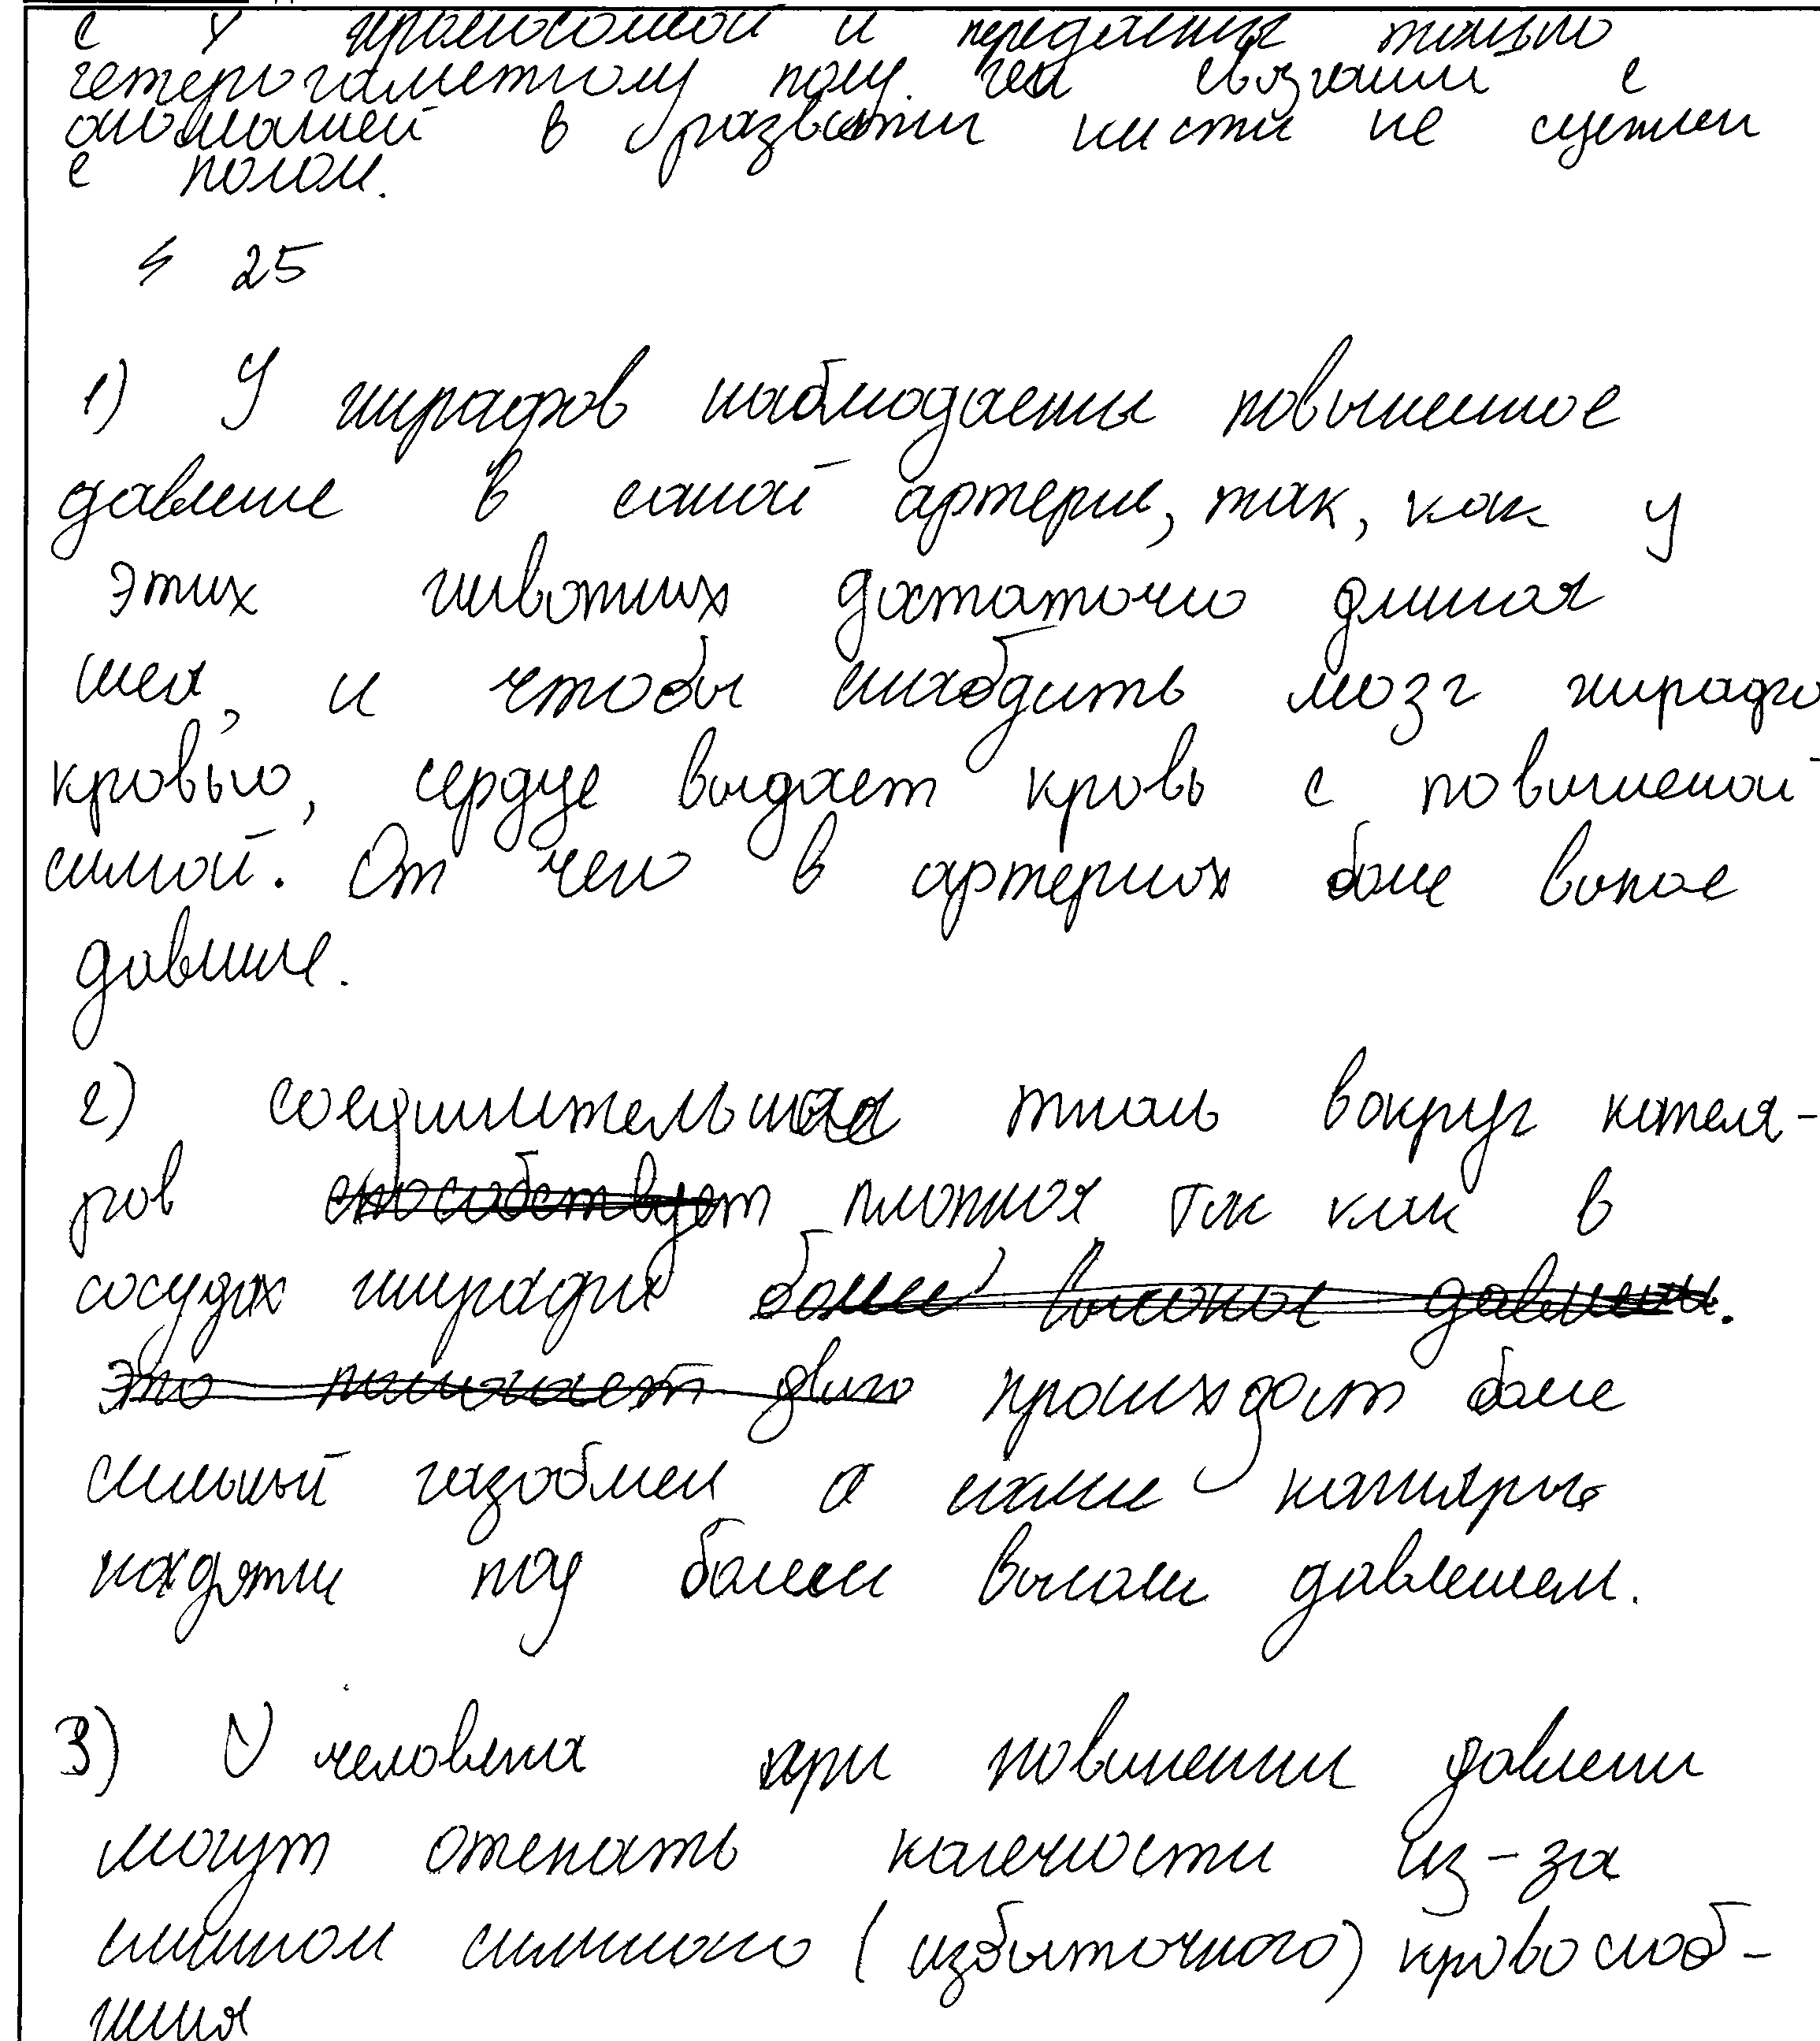 с Y хромосомой и передаётся только
гетерогаметному полу. ген связаный с
аномалией в развитии кисти не сцеплен
с полом.
25
1) У жирафов наблюдаеться повышенное
давление в соной артерии, так, как у
этих животных достаточно длиная
шея, и чтобы снабдить мозг жирафа
кровью, сердце выдает кровь с повышеной
силой. От чего в артериях более высокое
давление.
2) соединительная ткань вокруг капеля-
ров способствует плотная так как в
сосудах жирафа более высокое давление.
это понижает происходит более
сильный газобмен а сами капиляры
находятся под более высоким давлением.
3) У человека при повышении давления
могут отекать конечности из-за
слишком сильного (избыточного) кровоснаб-
жения